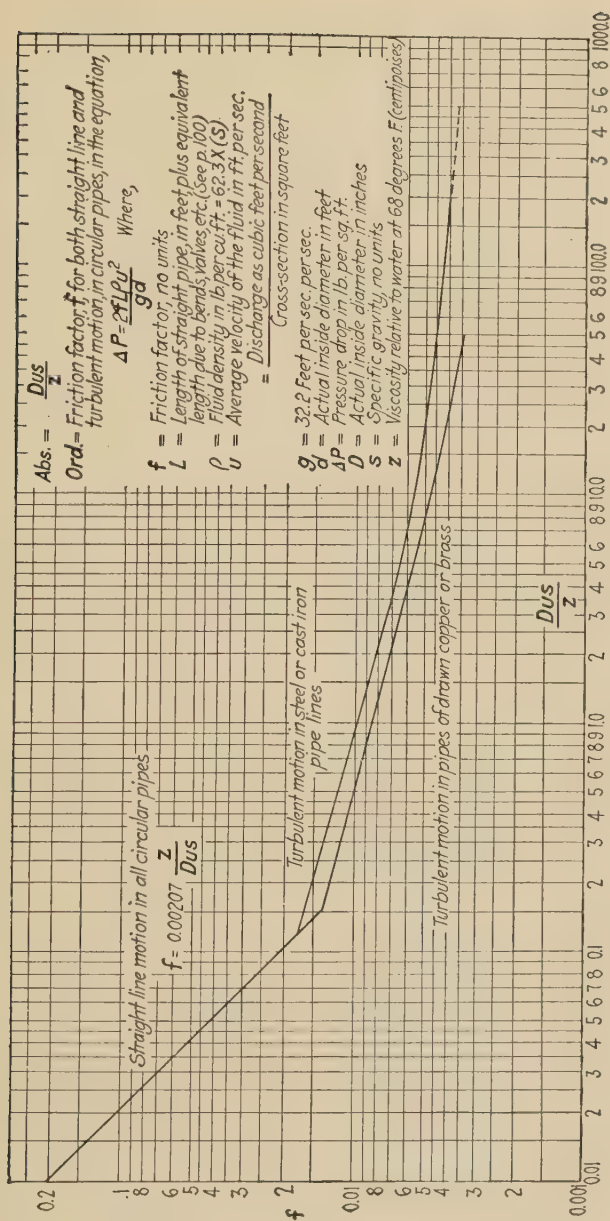 Abs. = Dus
z
Ord. = Friction factor, f, for both straight line and
turbulent motion, in circular pipes, in the equation,
ΔP = 2fLρu²
gd
Where,
f = Friction factor, no units
L = Length of straight pipe, in feet plus equivalent
length due to bends, valves, etc. (See p. 100)
ρ = Fluid density in lb. per cu. ft. = 62.3 X (S)
u = Average velocity of the fluid in ft. per sec.
= Discharge as cubic feet per second
Cross-section in square feet
g = 32.2 Feet per sec. per sec.
d = Actual inside diameter in feet
ΔP = Pressure drop in lb. per sq. ft.
D = Actual inside diameter in inches
S = Specific gravity, no units
z = Viscosity relative to water at 68 degrees F. (centipoises)
Straight line motion in all circular pipes
f = 0.00207 z
Dus
Turbulent motion in steel or cast iron
pipe lines
Turbulent motion in pipes of drawn copper or brass
Dus
z
f
0.2
.1
8
6
5
4
3
2
0.01
8
6
5
4
3
2
0.001
0.01 2 3 4 5 6 7 8 0.1 2 3 4 5 6 7 8 9 1.0 2 3 4 5 6 8 9 10.0 2 3 4 5 6 8 9 100.0 2 3 4 5 6 8 1000.0